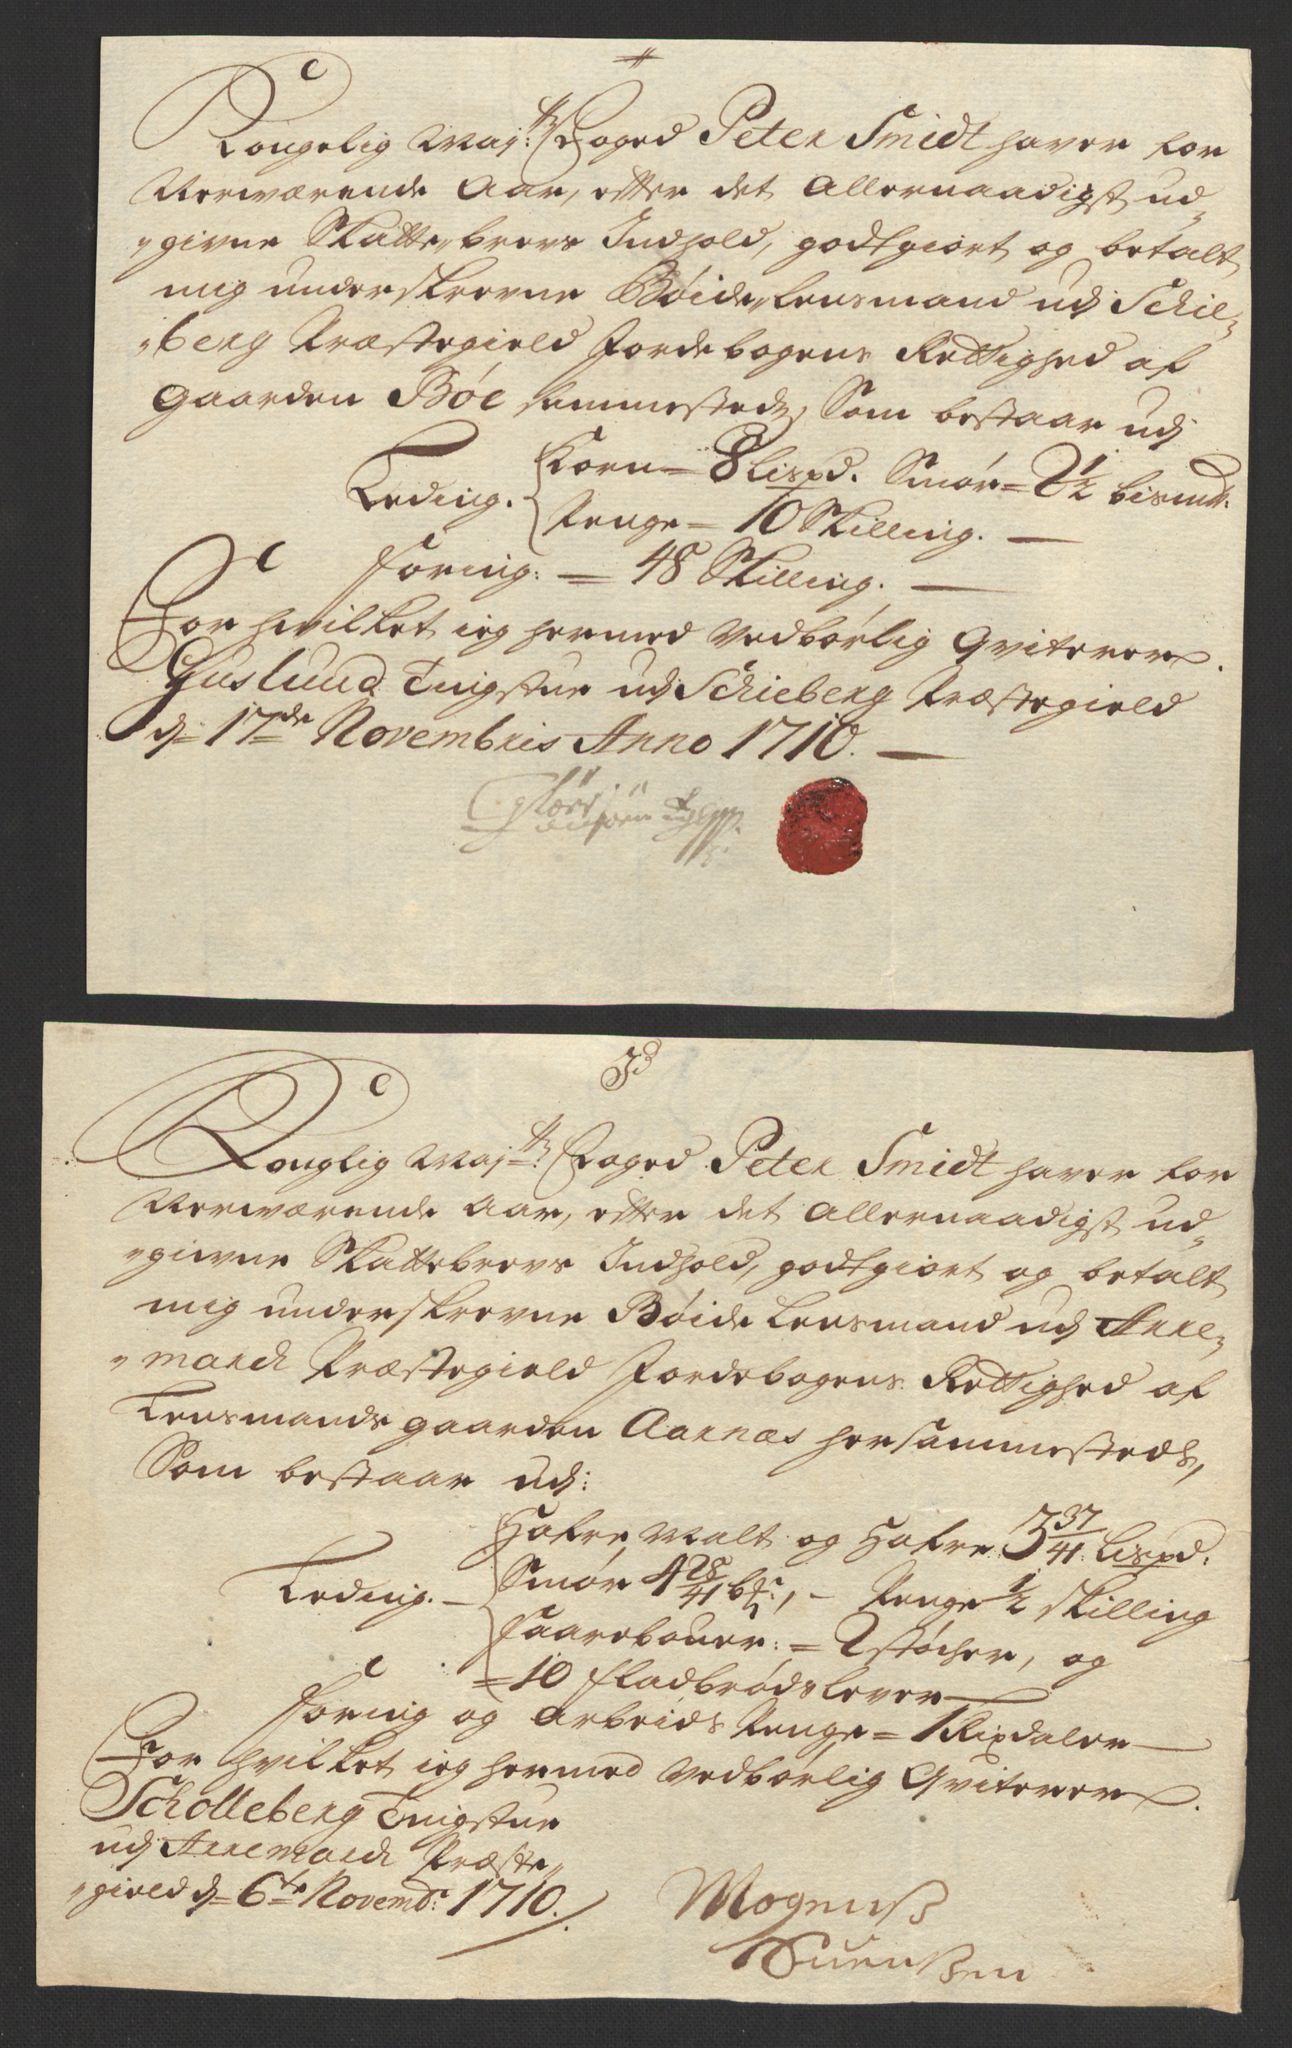 Kongelig May:tz Foged Peter Smidt haver for
Nerværende Aar, effter det Allernaadigst ud„
„givne Skatte„brevs Indhold, godtgiort og betalt
mig underskrevne Böide„Lensmand udj Schie„
„berg Præstegield Jordebogens Rettighed af
Gaarden Böe sammesteds, Som bestaar udj
Leding. Korn = 8 Lispd. Smör = 2½ bismk.
Penge = 10 Skilling. —
Foring: = 48 Skilling. —
For hvilket ieg hermed vedbörlig Qviterer.
Guslund Tingstue udj Schieberg Præstegield
d: 17de Novembris Anno 1710. —
Jd
Konglig May:tz Foged Peter Smidt haver for
Nerværende Aar, effter det Allernaadigst ud„
„givne Skattebrevs Indhold, godtgiort og betalt
mig underskrevne Böide Lensmand udj Arre„
„march Præstegield Jordebogens Rettighed af
Lensmands gaarden Aarnæs hersammesteds,
Som bestaar udj:
Hafre Malt og Hafre 3 37/41 Lispd.
Leding. — Smör 4 28/41 , – Penge ½ skilling
Faarebouer: = 2 støcher, og
= 10 fladbrøds lever —
Foring og Arbeids Penge = 1 Rixdaler —
For hvilket ieg hermed vedbörlig Qviterer.
Scholleberg Tingstue
udj Arremarch Præste„
„gield d= 6te Novembr: 1710.
Mogenß
Suenßen